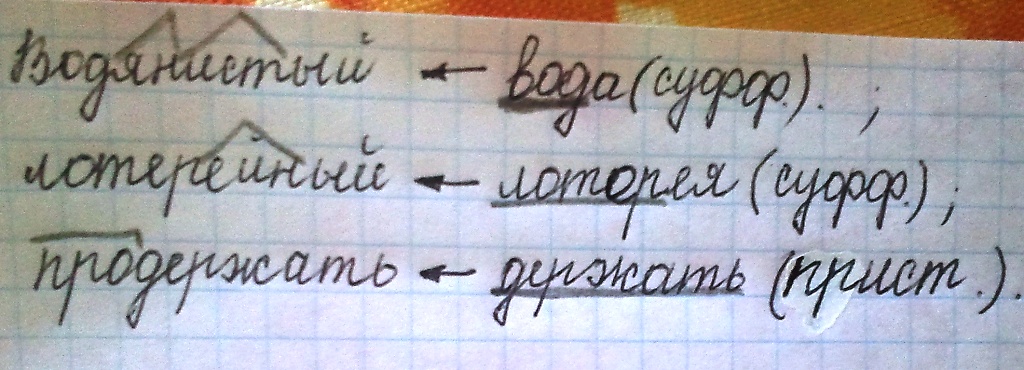 Водянистый ← вода (суфф.). ;
лотерейный ← лоторея (суфф.) ;
продержать ← держать (прист.).